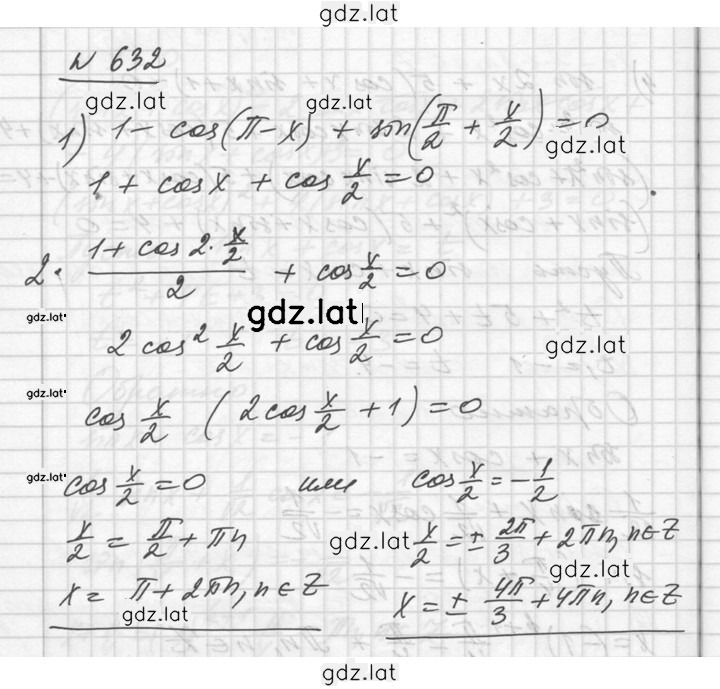 gdz.lat
N 632
gdz.lat gdz.lat
1) 1 - cos(π-x) + sin(π/2 + x/2) = 0
gdz.lat
1 + cos x + cos x/2 = 0
2· (1 + cos 2·x/2)/2 + cos x/2 = 0
gdz.lat gdz.lat
2 cos² x/2 + cos x/2 = 0
gdz.lat
gdz.lat
cos x/2 (2cos x/2 + 1) = 0
gdz.lat
cos x/2 = 0 или cos x/2 = -1/2
x/2 = π/2 + πn gdz.lat x/2 = ± 2π/3 + 2πn, n∈Z
gdz.lat
x = π + 2πn, n∈Z x = ± 4π/3 + 4πn, n∈Z
gdz.lat
gdz.lat